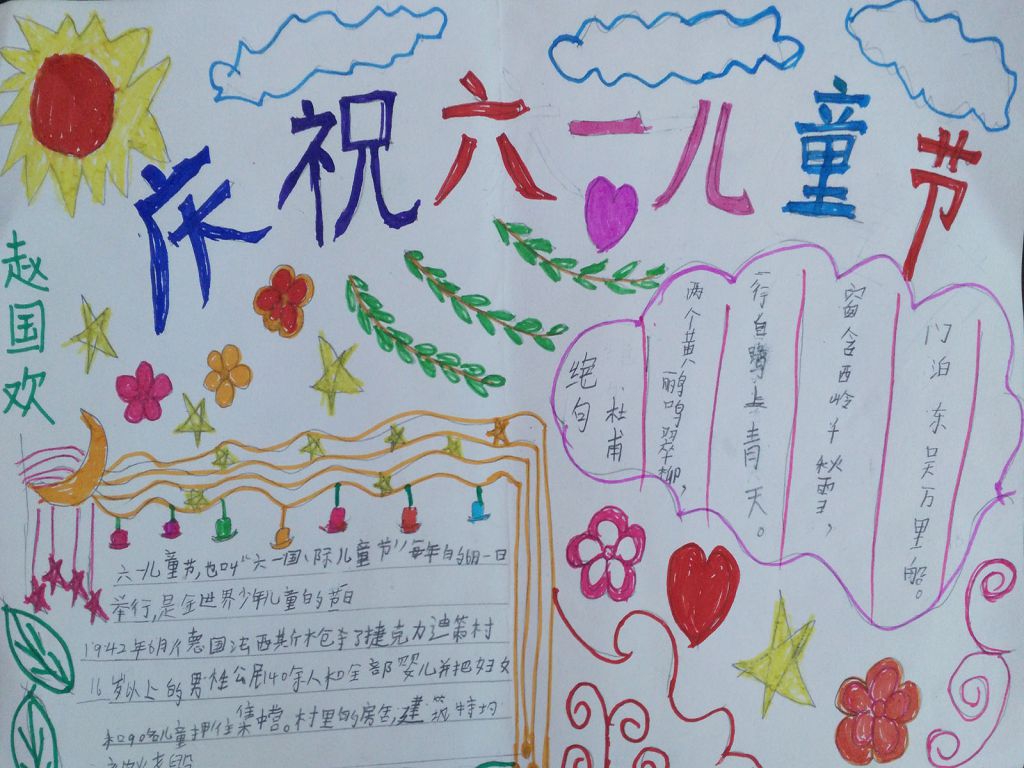 庆祝六一儿童节
赵国欢
绝句
杜甫
两个黄鹂鸣翠柳,
一行白鹭上青天。
窗含西岭千秋雪,
门泊东吴万里船。
六一儿童节,也叫“六一国际儿童节”每年的六月一日
举行,是全世界少年儿童的节日
1942年6月德国法西斯包了捷克力迪策村
16岁以上的男性公民140余人和全部婴儿并把妇女
和90名儿童押往集中营。村里的房舍,建筑特均